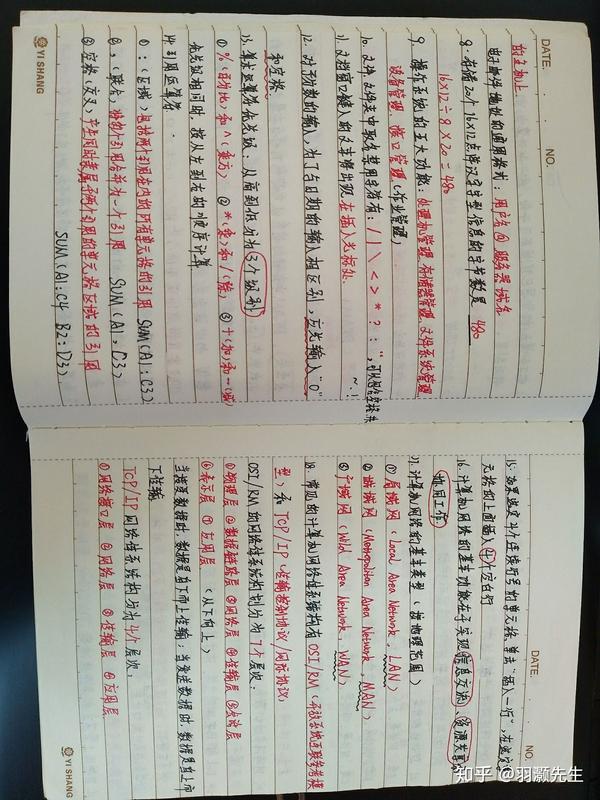 DATE. NO.
的主机上
电子邮件地址的通用格式：用户名@服务器域名
8. 存储20个16×12点阵汉字字型信息的字节数是 480
16×12÷8×20=480
9. 操作系统的五大功能：处理机管理、存储器管理、文件系统管理
设备管理、接口管理（作业管理）
10. 文件、文件夹中取名禁用字符有：/ | \ < > * ? : "，可以包含空格和
11. 文档窗口键入的文字将出现在插入光标处
12. 对于分数的输入，为了与日期的输入相区别，应先输入"0"
和空格
13. 算术运算符优先级：从高到低分为3个级别
① %（百分比）和^（乘方） ② *（乘）和/（除） ③ +（加）和-（减）
优先级相同时，按从左到右的顺序计算
14. 引用运算符
① :（区域），包括两个引用在内的所有单元格的引用 SUM(A1:C3)
② ,（联合），将多个引用合并为一个引用 SUM(A1,C3)
③ 空格（交叉），产生同时隶属于两个引用的单元格区域的引用
SUM(A1:C4 B2:D3)
YI SHANG
DATE. NO.
15. 如果选定4个连续行号的单元格，单击"插入一行"，在选定
元格的上面插入4个空白行
16. 计算机网络的基本功能在于实现信息交流、资源共享
协同工作
17. 计算机网络的基本类型（按地理范围）
① 局域网（Local Area Network，LAN）
② 城域网（Metropolitan Area Network，MAN）
③ 广域网（Wild Area Network，WAN）
18. 常见的计算机网络体系结构有OSI/RM（开放系统互联参考模
型）和TCP/IP（传输控制协议/网际协议）
OSI/RM的网络体系结构划分为7个层次：
①物理层 ②数据链路层 ③网络层 ④传输层 ⑤会话层
⑥表示层 ⑦应用层 （从下向上）
当接受数据时，数据是自下而上传输；当发送数据时，数据是自上而
下传输
TCP/IP网络体系结构分为4个层次：
①网络接口层 ②网络层 ③传输层 ④应用层
YI SHANG
知乎 @羽灏先生